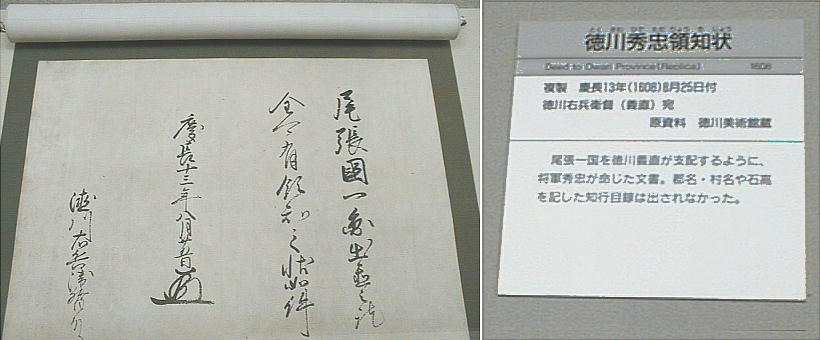 尾張國一円出置之訖
全可有領知之状如件
慶長十三年八月廿五日
徳川右兵衛督殿
徳川秀忠領知状
Deed to Owari Province(Replica) 1608
複製 慶長13年(1608)8月25日付
徳川右兵衛督（義直）宛
原資料 徳川美術館蔵
尾張一国を徳川義直が支配するように、
将軍秀忠が命じた文書。郡名・村名や石高
を記した知行目録は出されなかった。